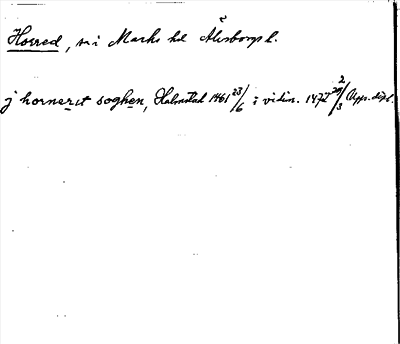 Horred, sn i Marks hd Älvsborgs l.
j hornerit soghen, Halmstad 1461 23/6 i vidim. 1472 20/3 Upps. dipl.